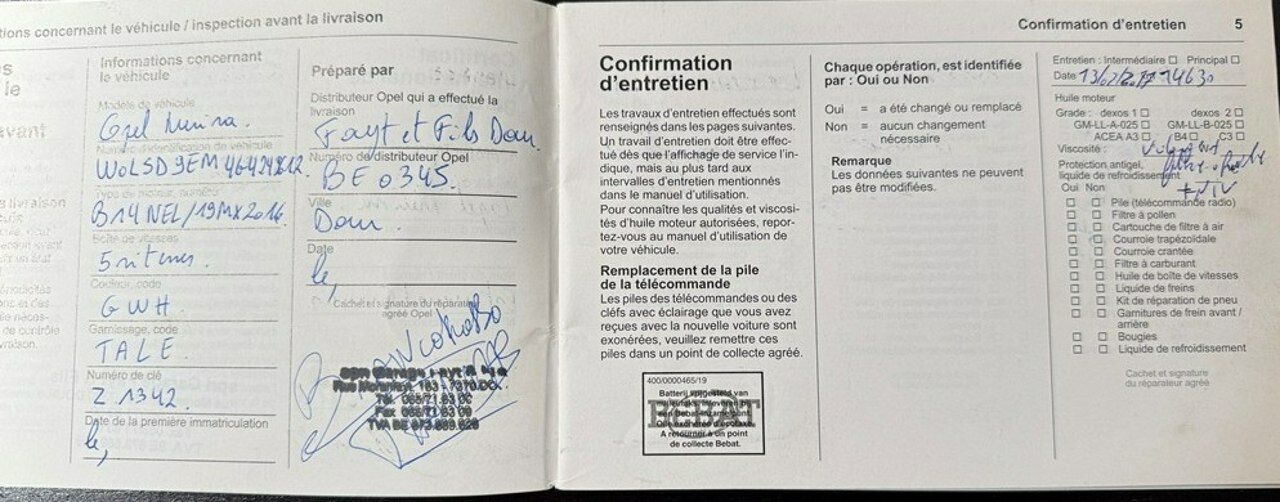 tions concernant le véhicule / inspection avant la livraison
Informations concernant
le véhicule
Modèle de véhicule
Opel
Numéro d'identification de véhicule
Type de moteur, numéro
B14NEL/19MX2016
Boîte de vitesses
5 vitesses.
Couleur, code
GWH.
Garnissage, code
TALE.
Numéro de clé
Z 1342.
Date de la première immatriculation
le,
Préparé par
Distributeur Opel qui a effectué la
livraison
Fayt et Fils Dour.
Numéro de distributeur Opel
BE 0345.
Ville
Dour.
Date
le,
Cachet et signature du réparateur
agréé Opel
Confirmation d'entretien 5
Confirmation
d'entretien
Les travaux d'entretien effectués sont
renseignés dans les pages suivantes.
Un travail d'entretien doit être effec-
tué dès que l'affichage de service l'in-
dique, mais au plus tard aux
intervalles d'entretien mentionnés
dans le manuel d'utilisation.
Pour connaître les qualités et viscosi-
tés d'huile moteur autorisées, repor-
tez-vous au manuel d'utilisation de
votre véhicule.
Remplacement de la pile
de la télécommande
Les piles des télécommandes ou des
clefs avec éclairage que vous avez
reçues avec la nouvelle voiture sont
exonérées, veuillez remettre ces
piles dans un point de collecte agréé.
400/0000465/19
BEBAT
A retourner à un point
de collecte Bebat.
Chaque opération, est identifiée
par : Oui ou Non
Oui = a été changé ou remplacé
Non = aucun changement
nécessaire
Remarque
Les données suivantes ne peuvent
pas être modifiées.
Entretien : Intermédiaire ☐ Principal ☐
Date 14630
Huile moteur
Grade : dexos 1 ☐ dexos 2 ☐
GM-LL-A-025 ☐ GM-LL-B-025 ☐
ACEA A3 ☐ B4 ☐ C3 ☐
Viscosité :
Protection antigel,
liquide de refroidissement
Oui Non
☐ ☐ Pile (télécommande radio)
☐ ☐ Filtre à pollen
☐ ☐ Cartouche de filtre à air
☐ ☐ Courroie trapézoïdale
☐ ☐ Courroie crantée
☐ ☐ Filtre à carburant
☐ ☐ Huile de boîte de vitesses
☐ ☐ Liquide de freins
☐ ☐ Kit de réparation de pneu
☐ ☐ Garnitures de frein avant /
arrière
☐ ☐ Bougies
☐ ☐ Liquide de refroidissement
Cachet et signature
du réparateur agréé